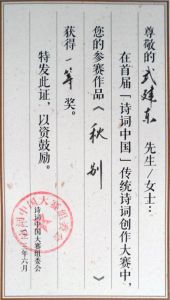 尊敬的 武建东 先生/女士：
在首届「诗词中国」传统诗词创作大赛中，
您的参赛作品《秋别》
获得 一等 奖。
特发此证，以资鼓励。
诗词中国大赛组委会
二〇一三年六月
诗词中国大赛组委会